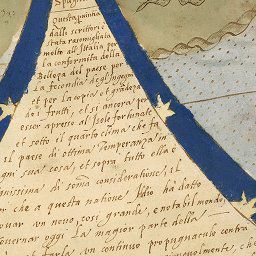 Spagna
Questa patria
dalli scrittori è
stata rasomigliata
molto all Italia, per
la conformità della
Bellezza del paese per
La fecondia degl' ingegni
et per la copia, et grandezza
dei frutti, el si ancor, per
esser apresso al Isole fortunate,
et sotto il quarto clima, che fa
il paese di ottima Temperanza, in
sua cosa, et sopra tutto ella è
di soma consideratione, il
che a questa natione, Iddio ha datto
un nevo, così grande, e notabil mondo,
Governar oggi La magior parte della
un continuo propugnaculo centra